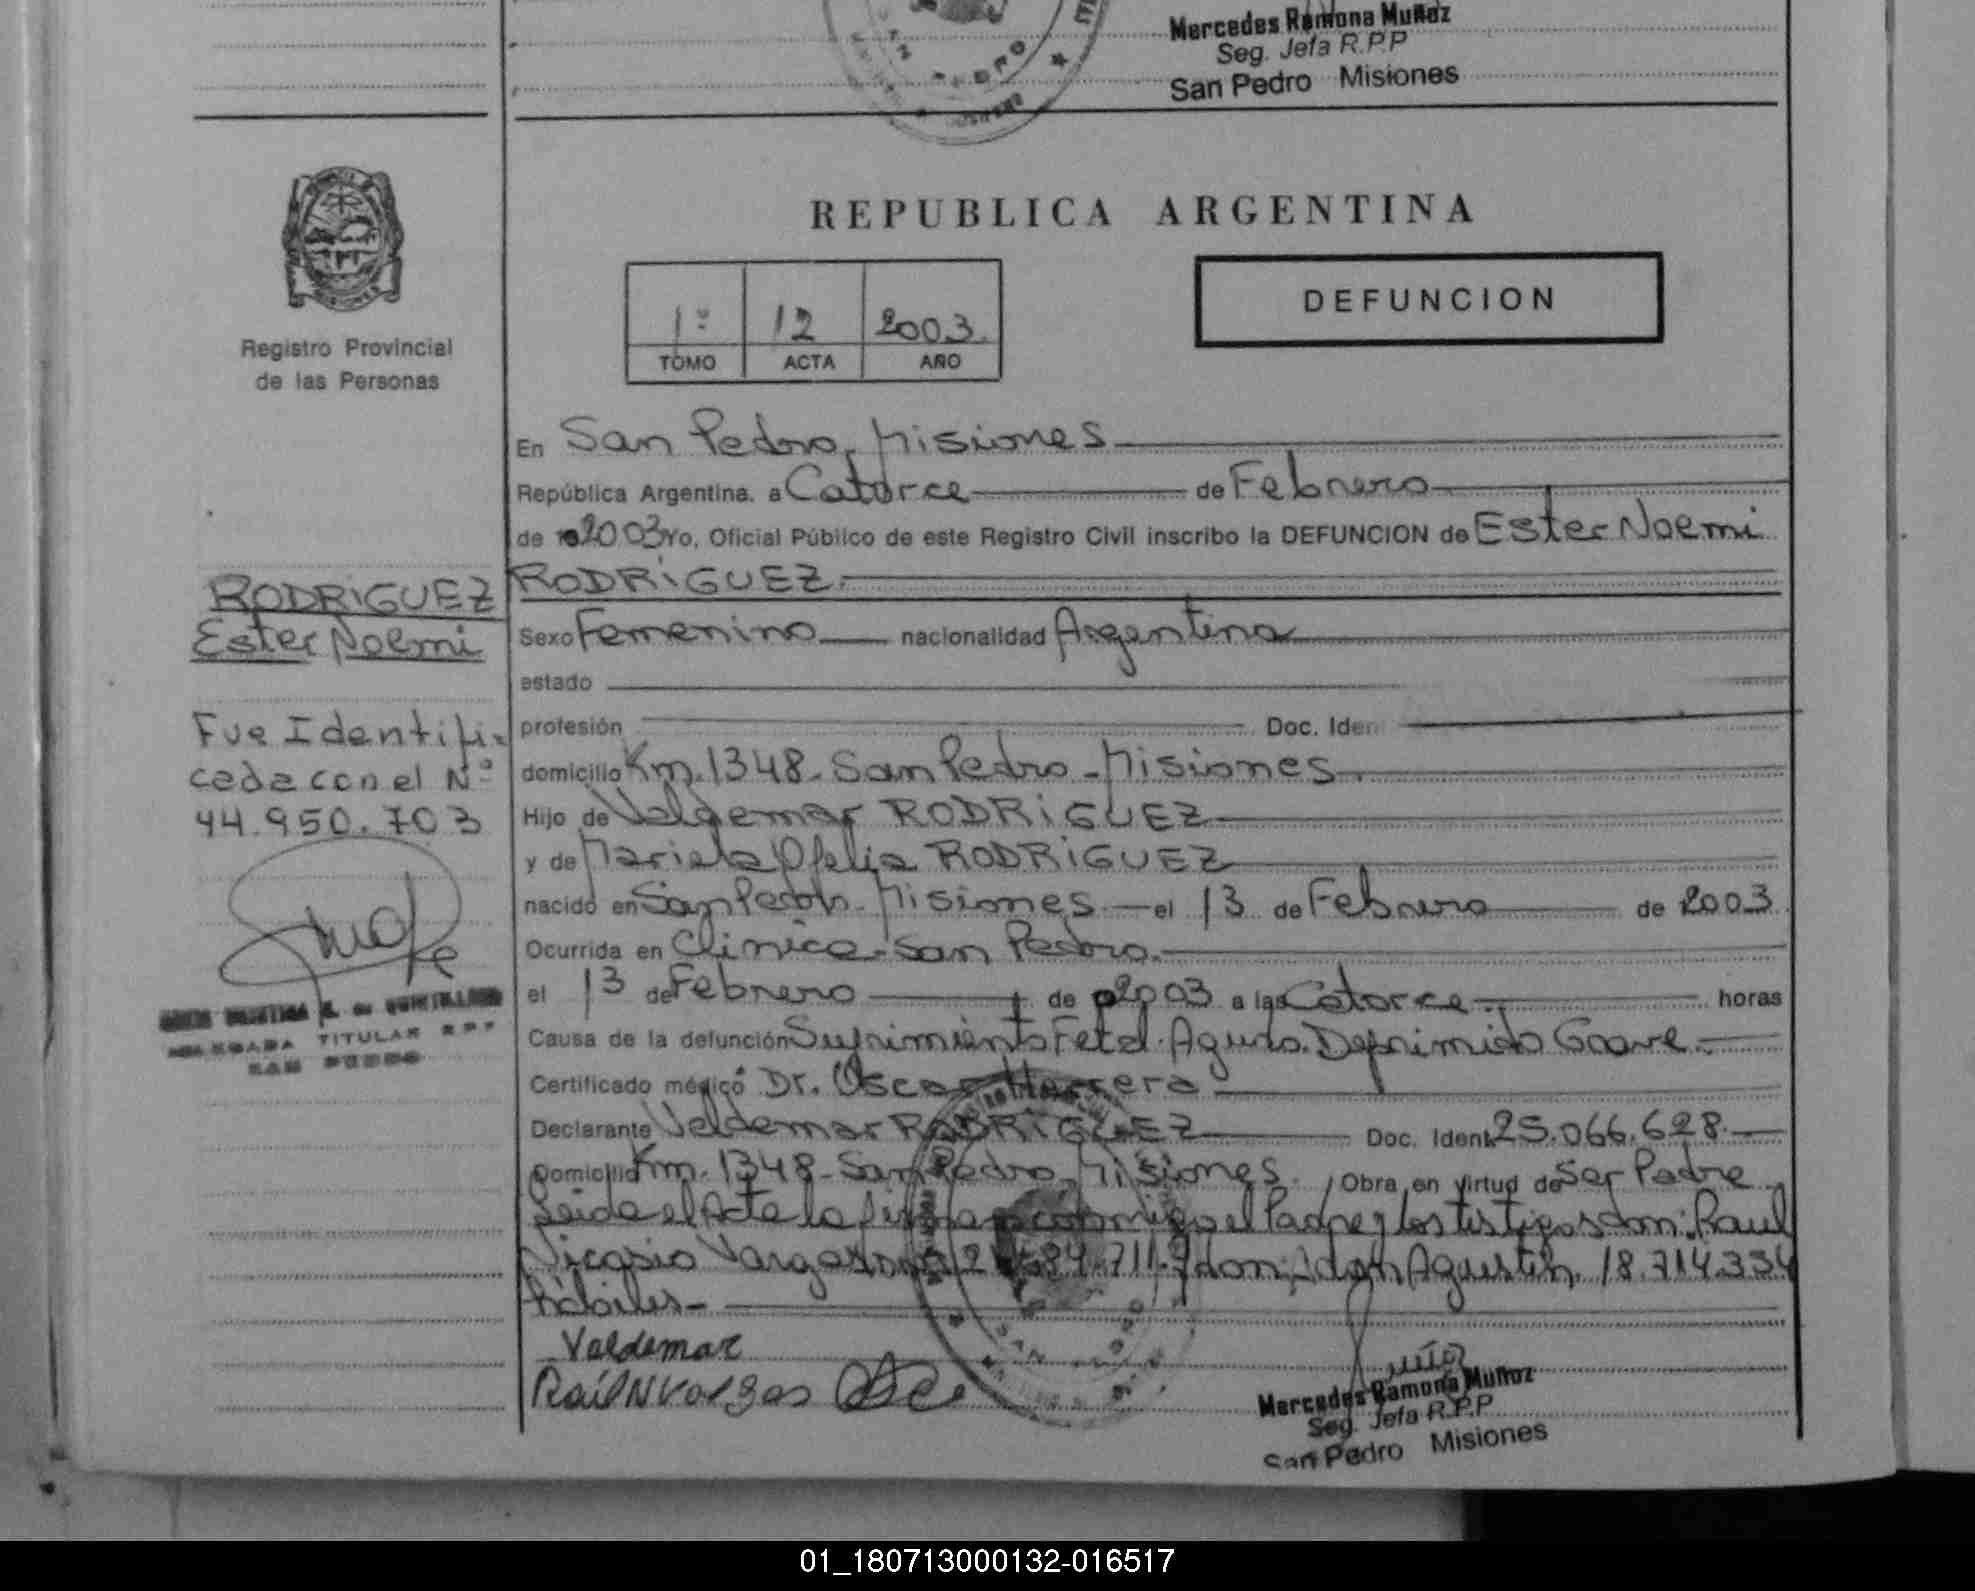 Mercedes Ramona Muñoz
Seg. Jefa R.P.P
San Pedro Misiones
REPUBLICA ARGENTINA
1º 12 2003.
TOMO ACTA AÑO
DEFUNCION
Registro Provincial
de las Personas
RODRIGUEZ
Ester Noemi
Fue Identifi-
cada con el Nº
44.950.703
TITULAR R.P.P
SAN PEDRO
En San Pedro, Misiones
República Argentina, a Catorce de Febrero
de 2003 Yo, Oficial Público de este Registro Civil inscribo la DEFUNCION de Ester Noemi
RODRIGUEZ.
Sexo Femenino nacionalidad Argentina
estado
profesión Doc. Iden
domicilio Km. 1348 - San Pedro - Misiones
Hijo de Valdemar RODRIGUEZ
y de Mariela Ofelia RODRIGUEZ
nacido en San Pedro - Misiones el 13 de Febrero de 2003
Ocurrida en Clinica - San Pedro.
el 13 de Febrero de 2003 a las Catorce horas
Causa de la defunción Sufrimiento Fetal Agudo. Deprimido Grave.
Certificado médico Dr. Oscar Herrera
Declarante Valdemar RODRIGUEZ Doc. Ident 25.066.628.
Domicilio Km. 1348 - San Pedro, Misiones. Obra en virtud de Ser Padre
Leida el Acta la firman conmigo el Padre y los testigos don: Raul
Nicasio Vargas 711 y don: Agustin 18.714.334
hábiles.-
Valdemar
Raúl N Vargas
Mercedes Ramona Muñoz
Seg. Jefa R.P.P
San Pedro Misiones
01_180713000132-016517